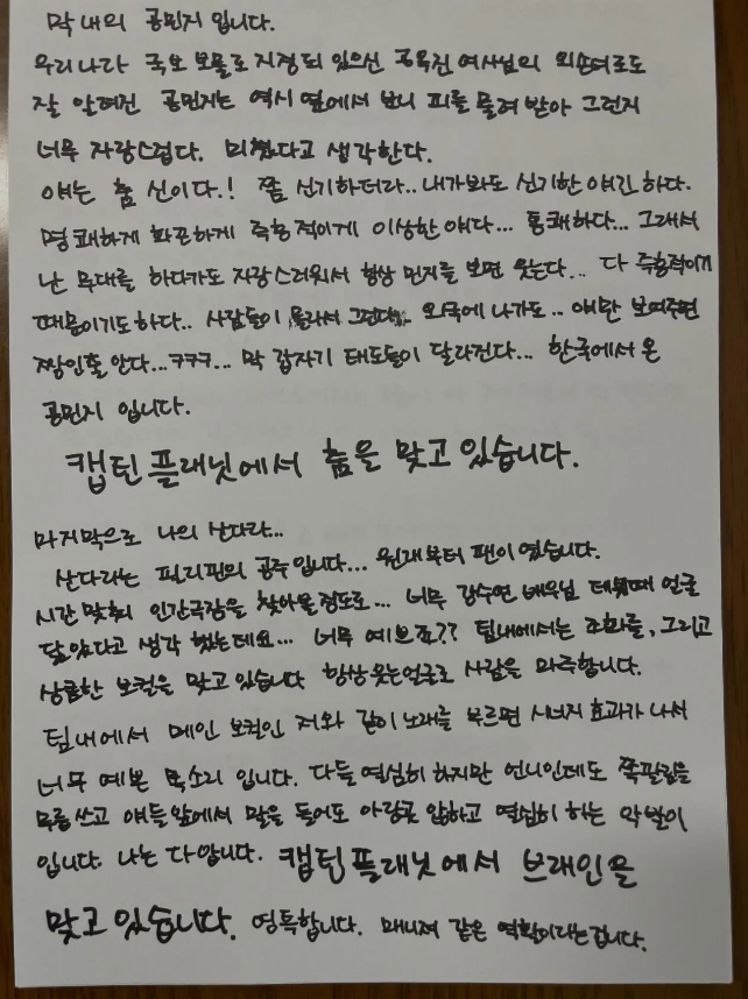 막내의 공민지 입니다.
우리나라 국보 보물로 지정되 있으신 공옥진 여사님의 외손녀로도
잘 알려진 공민지는 역시 옆에서 보니 피를 물려 받아 그런지
너무 자랑스럽다. 미쳤다고 생각한다.
얘는 춤 신이다.! 쫌 신기하더라.. 내가봐도 신기한 얘긴 하다.
명쾌하게 화끈하게 즉흥적이게 이상한 얘다... 통쾌하다... 그래서
난 무대를 하다가도 자랑스러워서 항상 민지를 보면 웃는다... 다 즉흥적이기
때문이기도하다.. 사람들이 몰라서 그런데.. 외국에 나가도.. 얘만 보여주면
짱인줄 안다...ㅋㅋㅋ... 막 갑자기 태도들이 달라진다... 한국에서 온
공민지 입니다.
캡틴플래닛에서 춤을 맞고 있습니다.
마지막으로 나의 산다라...
산다라는 필리핀의 공주입니다... 원래부터 팬이였습니다.
시간 맞춰 인간극장을 찾아볼정도로... 너무 강수연 배우님 데뷔때 얼굴
닮았다고 생각 했는데요... 너무 예쁘죠?? 팀내에서는 조화를, 그리고
상큼한 보컬을 맞고 있습니다 항상웃는얼굴로 사람을 마주합니다.
팀내에서 메인 보컬인 저와 같이 노래를 부르면 시너지 효과가 나서
너무 예쁜 목소리 입니다. 다들 열심히 하지만 언니인데도 쪽팔림을
무릅쓰고 얘들앞에서 말을 들어도 아랑곳 안하고 열심히 하는 악발이
입니다. 나는 다압니다. 캡틴플래닛에서 브래인을
맞고있습니다. 영특합니다. 매니져 같은 역활이라는겁니다.